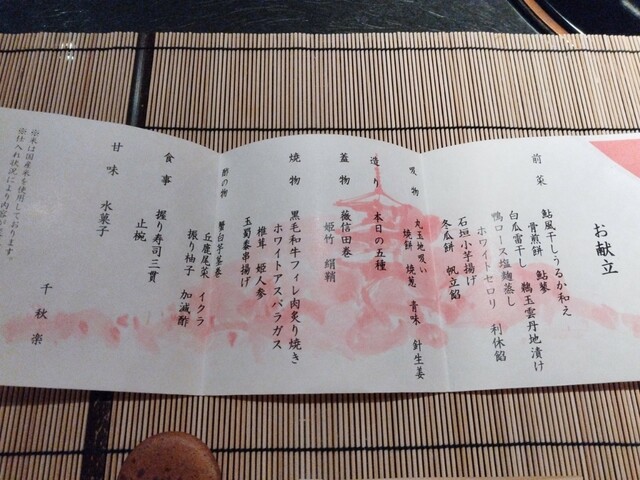 お献立
前菜
鮎風干しうるか和え
骨煎餅 鮎蓼
鶉玉雲丹地漬け
白瓜雷干し
鴨ロース塩麹蒸し
ホワイトセロリ 利休餡
石垣小芋揚げ
冬瓜餅 帆立餡
吸物
丸玉地吸い
焼餅 焼葱 青味 針生姜
造り
本日の五種
蓋物
薇信田巻
姫竹 絹鞘
焼物
黒毛和牛フィレ肉炙り焼き
ホワイトアスパラガス
椎茸 姫人参
玉蜀黍串揚げ
酢の物
蟹白芋茎巻
丘鹿尾菜 イクラ
振り柚子 加減酢
食事
握り寿司二貫
止椀
甘味
水菓子
千秋楽
※米は国産米を使用しております。
※仕入れ状況により内容が